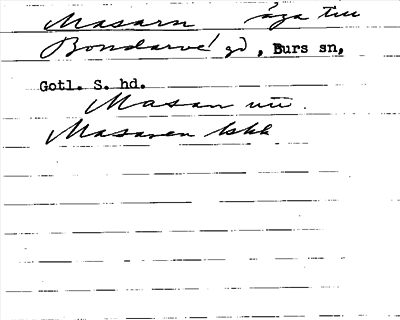 Masarn äga till
Bondarve gd, Burs sn,
Gotl. S. hd.
Masan
Masaren